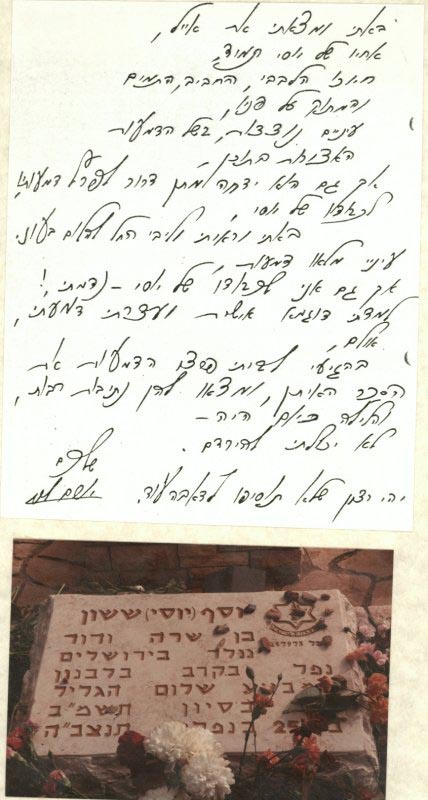 באתי ומצאתי את אייל,
אחיו של יוסי תמיד,
חיוכו הלבבי, החביב, התמים
והמתוק על פניו,
עיניים נוצצות, בשל הדמעות
האצורות בתוכן,
אך גם הוא ידחה למתן דרור לפרץ דמעותיו
לכבודו של יוסי,
באתי וראיתי וליבי החל להלום בעוז
עיניי מלאו דמעות,
אך גם אני לכבודו של יוסי - נדמתי!
למדתי דוגמא אישית ועצרתי דמעתי,
אולם,
בהגיעי לביתי פרצו הדמעות את
הסכר האיתן, ומצאו להן נתיבות רבות,
והלילה כיום היה -
לא יכולתי להירדם.
שלכם
יהי רצון שלא תוסיפו לדאבה עוד.
יוסף (יוסי) ששון
בן שרה ודוד
נולד בירושלים
נפל בקרב בלבנון
במבצע שלום הגליל
בסיון תשמ"ב
בן 25 בנפלו
תנצב"ה